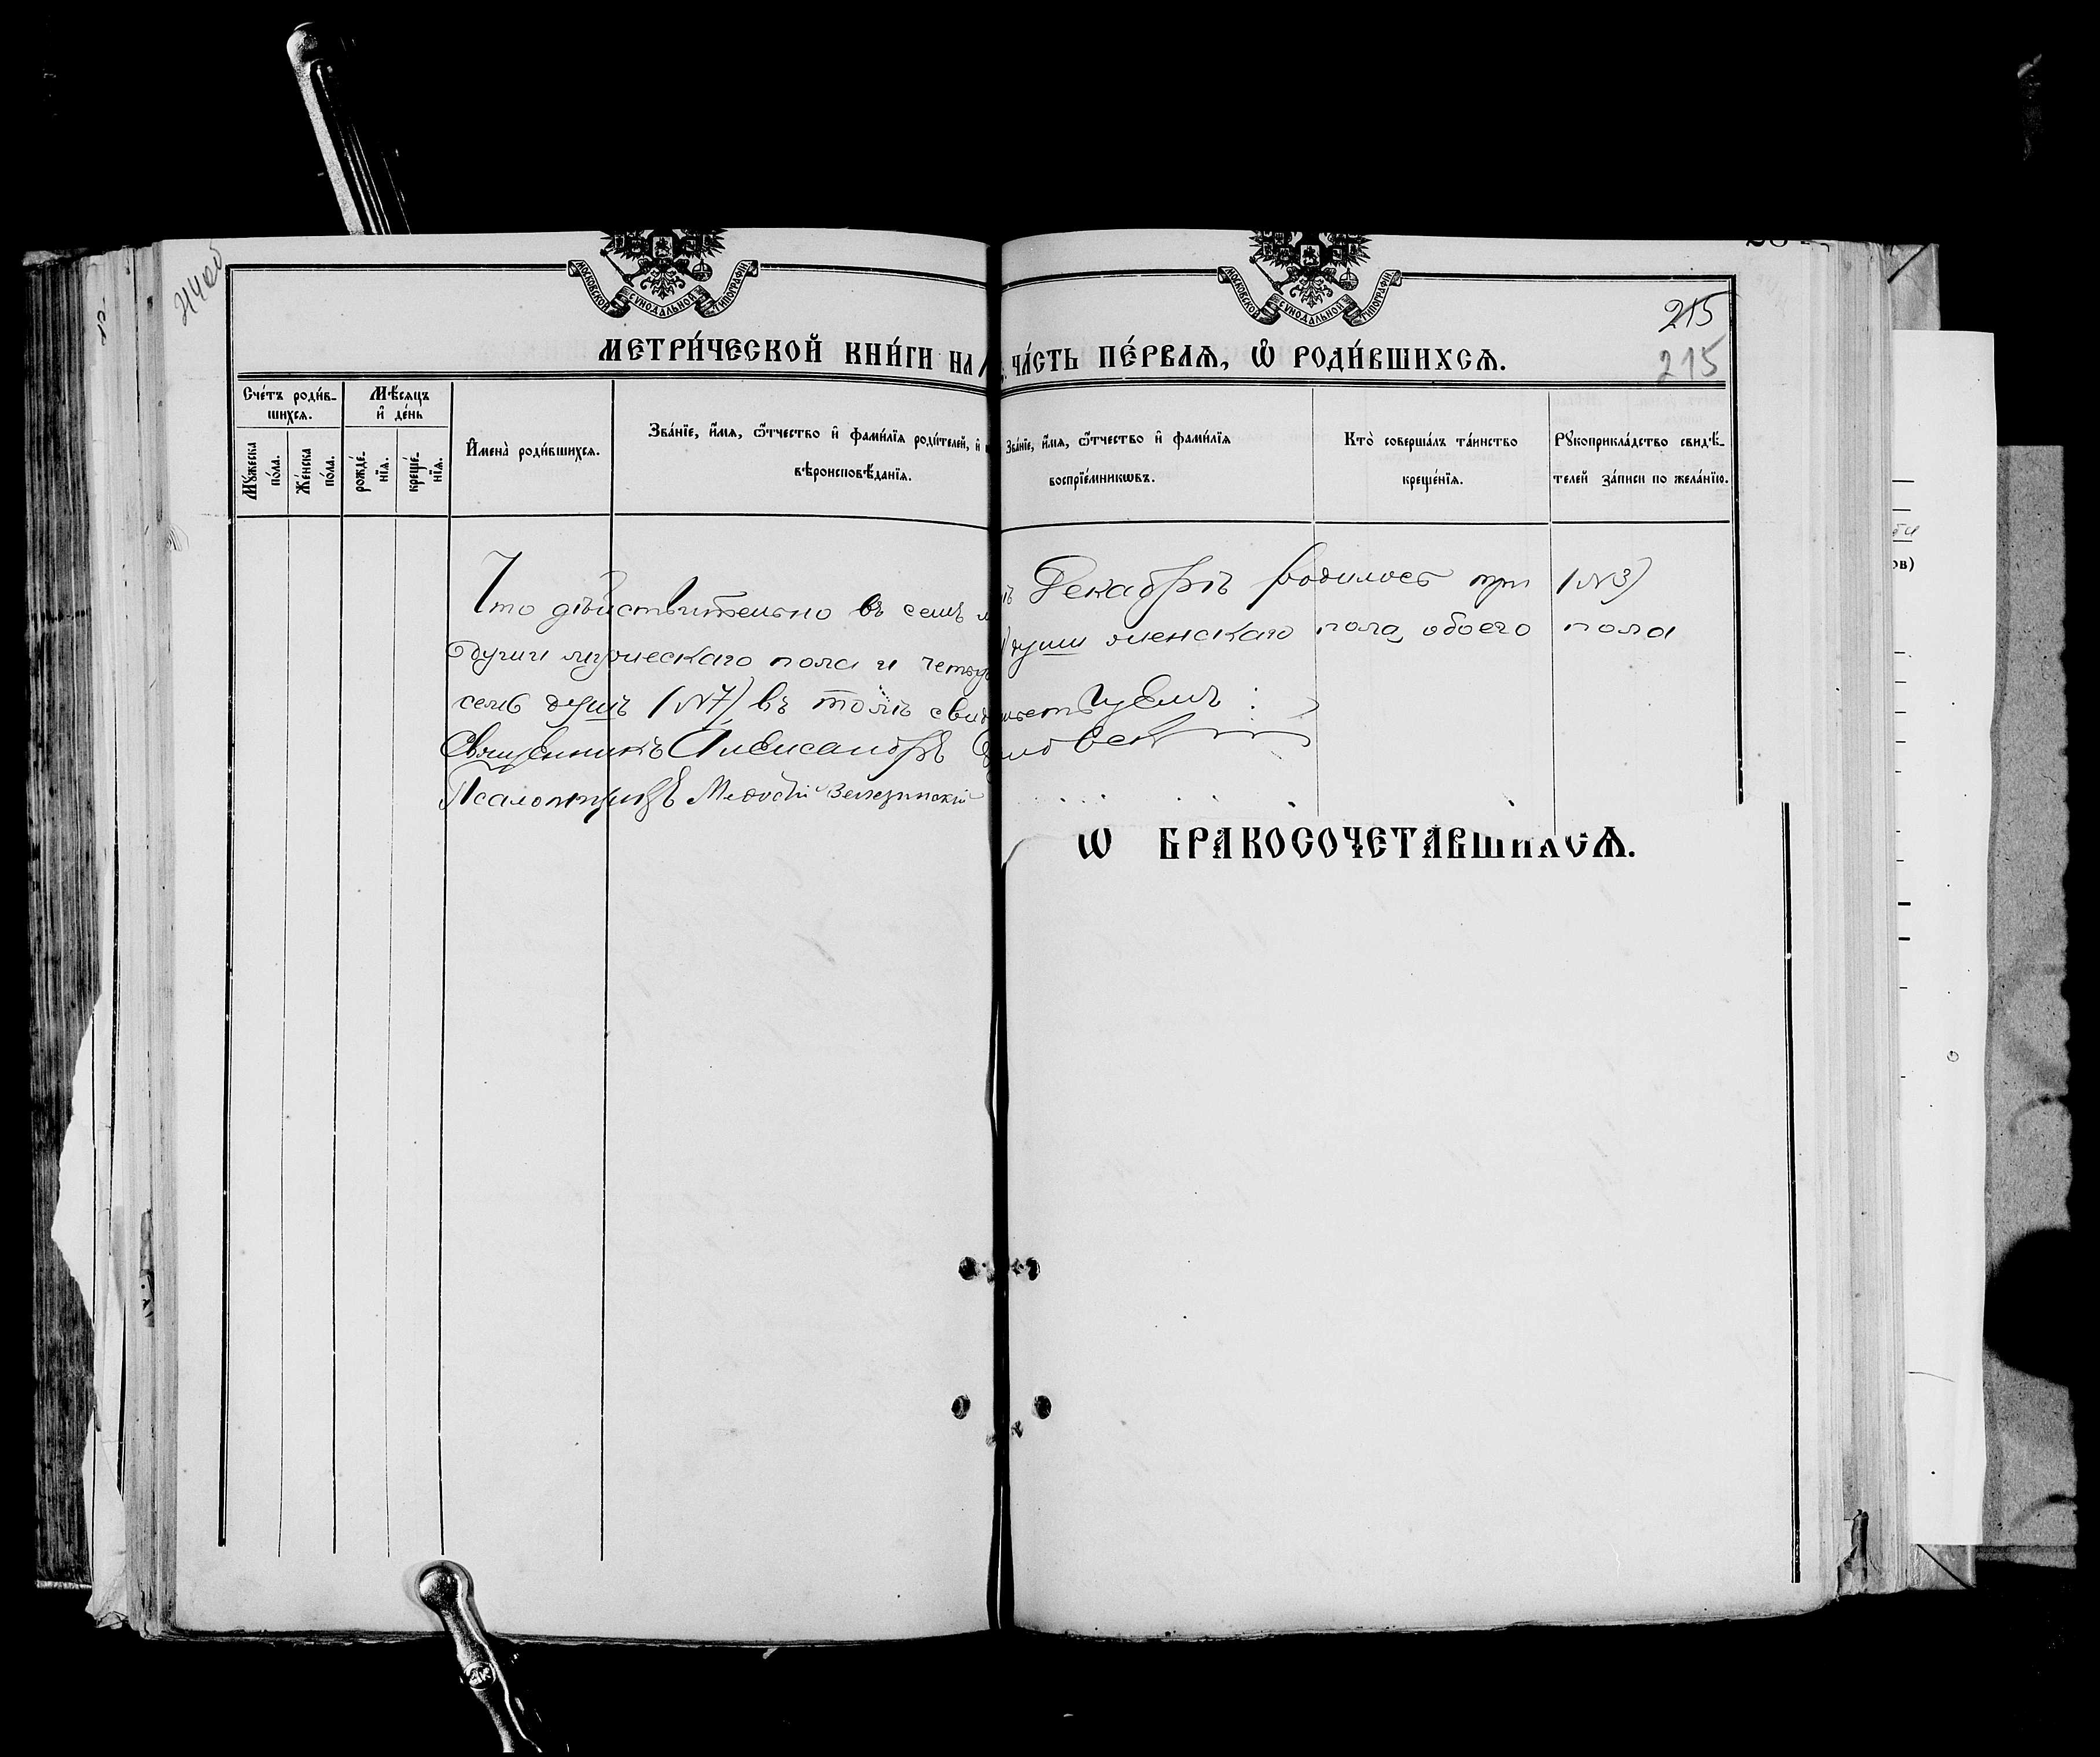 215
215
МОСКОВСКОЙ СУНОДАЛЬНОЙ ТИПОГРАФІИ
МОСКОВСКОЙ СУНОДАЛЬНОЙ ТИПОГРАФІИ
МЕТРИ́ЧЕСКОЙ КНИ́ГИ НА ЧА́СТЬ ПЕ́РВАѦ, Ѡ҆ РОДИ́ВШИХСѦ.
Сче́тъ роди́в-
шихсѧ.
Мꙋжеска
по́ла.
Же́нска
по́ла.
Мѣ́сяцъ
и҆ де́нь
рожде́-
нїѧ.
креще́-
нїѧ.
И҆мена̀ роди́вшихсѧ.
Зва́нїе, и҆́мѧ, ѻ҆́тчество и҆ фами́лїѧ роди́телей, и҆
вѣроисповѣ́данїѧ.
Зва́нїе, и҆́мѧ, ѻ҆́тчество и҆ фами́лїѧ
воспрїе́мникѡвъ.
Кто̀ соверша́лъ та́инство
креще́нїѧ.
Рꙋкоприкла́дство свидѣ́-
телей за́писи по жела́нїю.
Что дѣйствительно въ семъ Декабрѣ родилось три (№3)
души мужескаго пола и четыре души женскаго пола, обоего пола
семь душъ (№7) въ томъ свидѣтельствуемъ:
Священникъ Александръ
Псаломщикъ
Ѡ БРАКОСОЧЕТАВШИХСѦ.